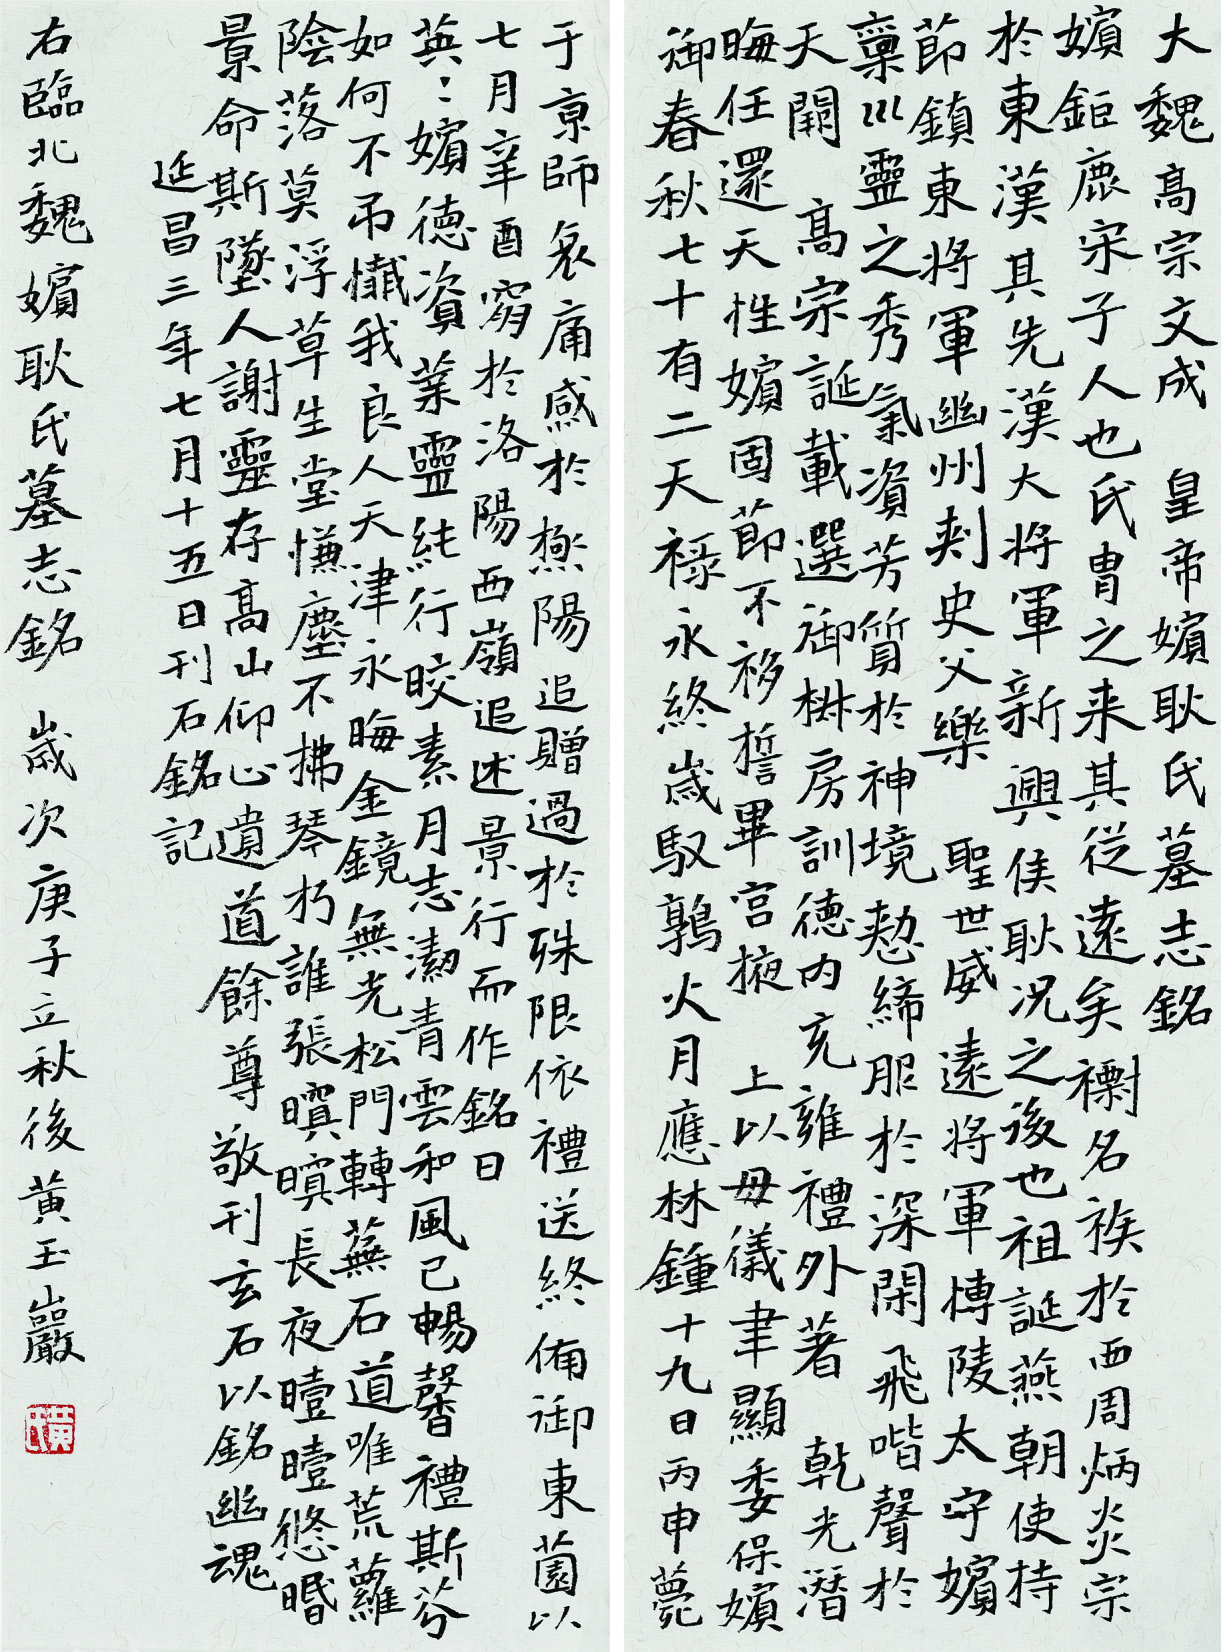 大魏高宗文成　皇帝嬪耿氏墓志銘
嬪鉅鹿宋子人也氏胄之来其従遠矣褾名族於西周炳炎宗
於東漢其先漢大将軍新興侯耿况之後也祖誕燕朝使持
節鎮東将軍幽州刾史父樂　聖世威遠将軍博陵太守嬪
稟巛靈之秀氣資芳質於神境懃締服於深閑飛喈聲於
天闈　高宗誕載選御椒房訓德内充雍禮外著　乾光潛
晦任還天性嬪固節不移誓畢宫掖　上以毋儀聿顯委保嬪
御春秋七十有二天禄永終歲馭鶉火月應林鍾十九日丙申薨
于京師哀痛感於極陽追贈過於殊限依禮送終俻御東薗以
七月辛酉窆於洛陽西嶺追述景行而作銘曰
英〻嬪德資葉靈純行皎素月志潔青雲和風已暢馨禮斯芬
如何不吊殱我良人天津永晦金鏡無光松門轉蕪石道唯荒蘿
陰落莫浮草生堂慊塵不拂琴朽誰張暝暝長夜曀曀悠昬
景命斯墜人謝靈存高山仰心遺道餘尊敬刊玄石以銘幽魂
延昌三年七月十五日刊石銘記
右臨北魏嬪耿氏墓志銘　歲次庚子立秋後黄玉巖
黄氏